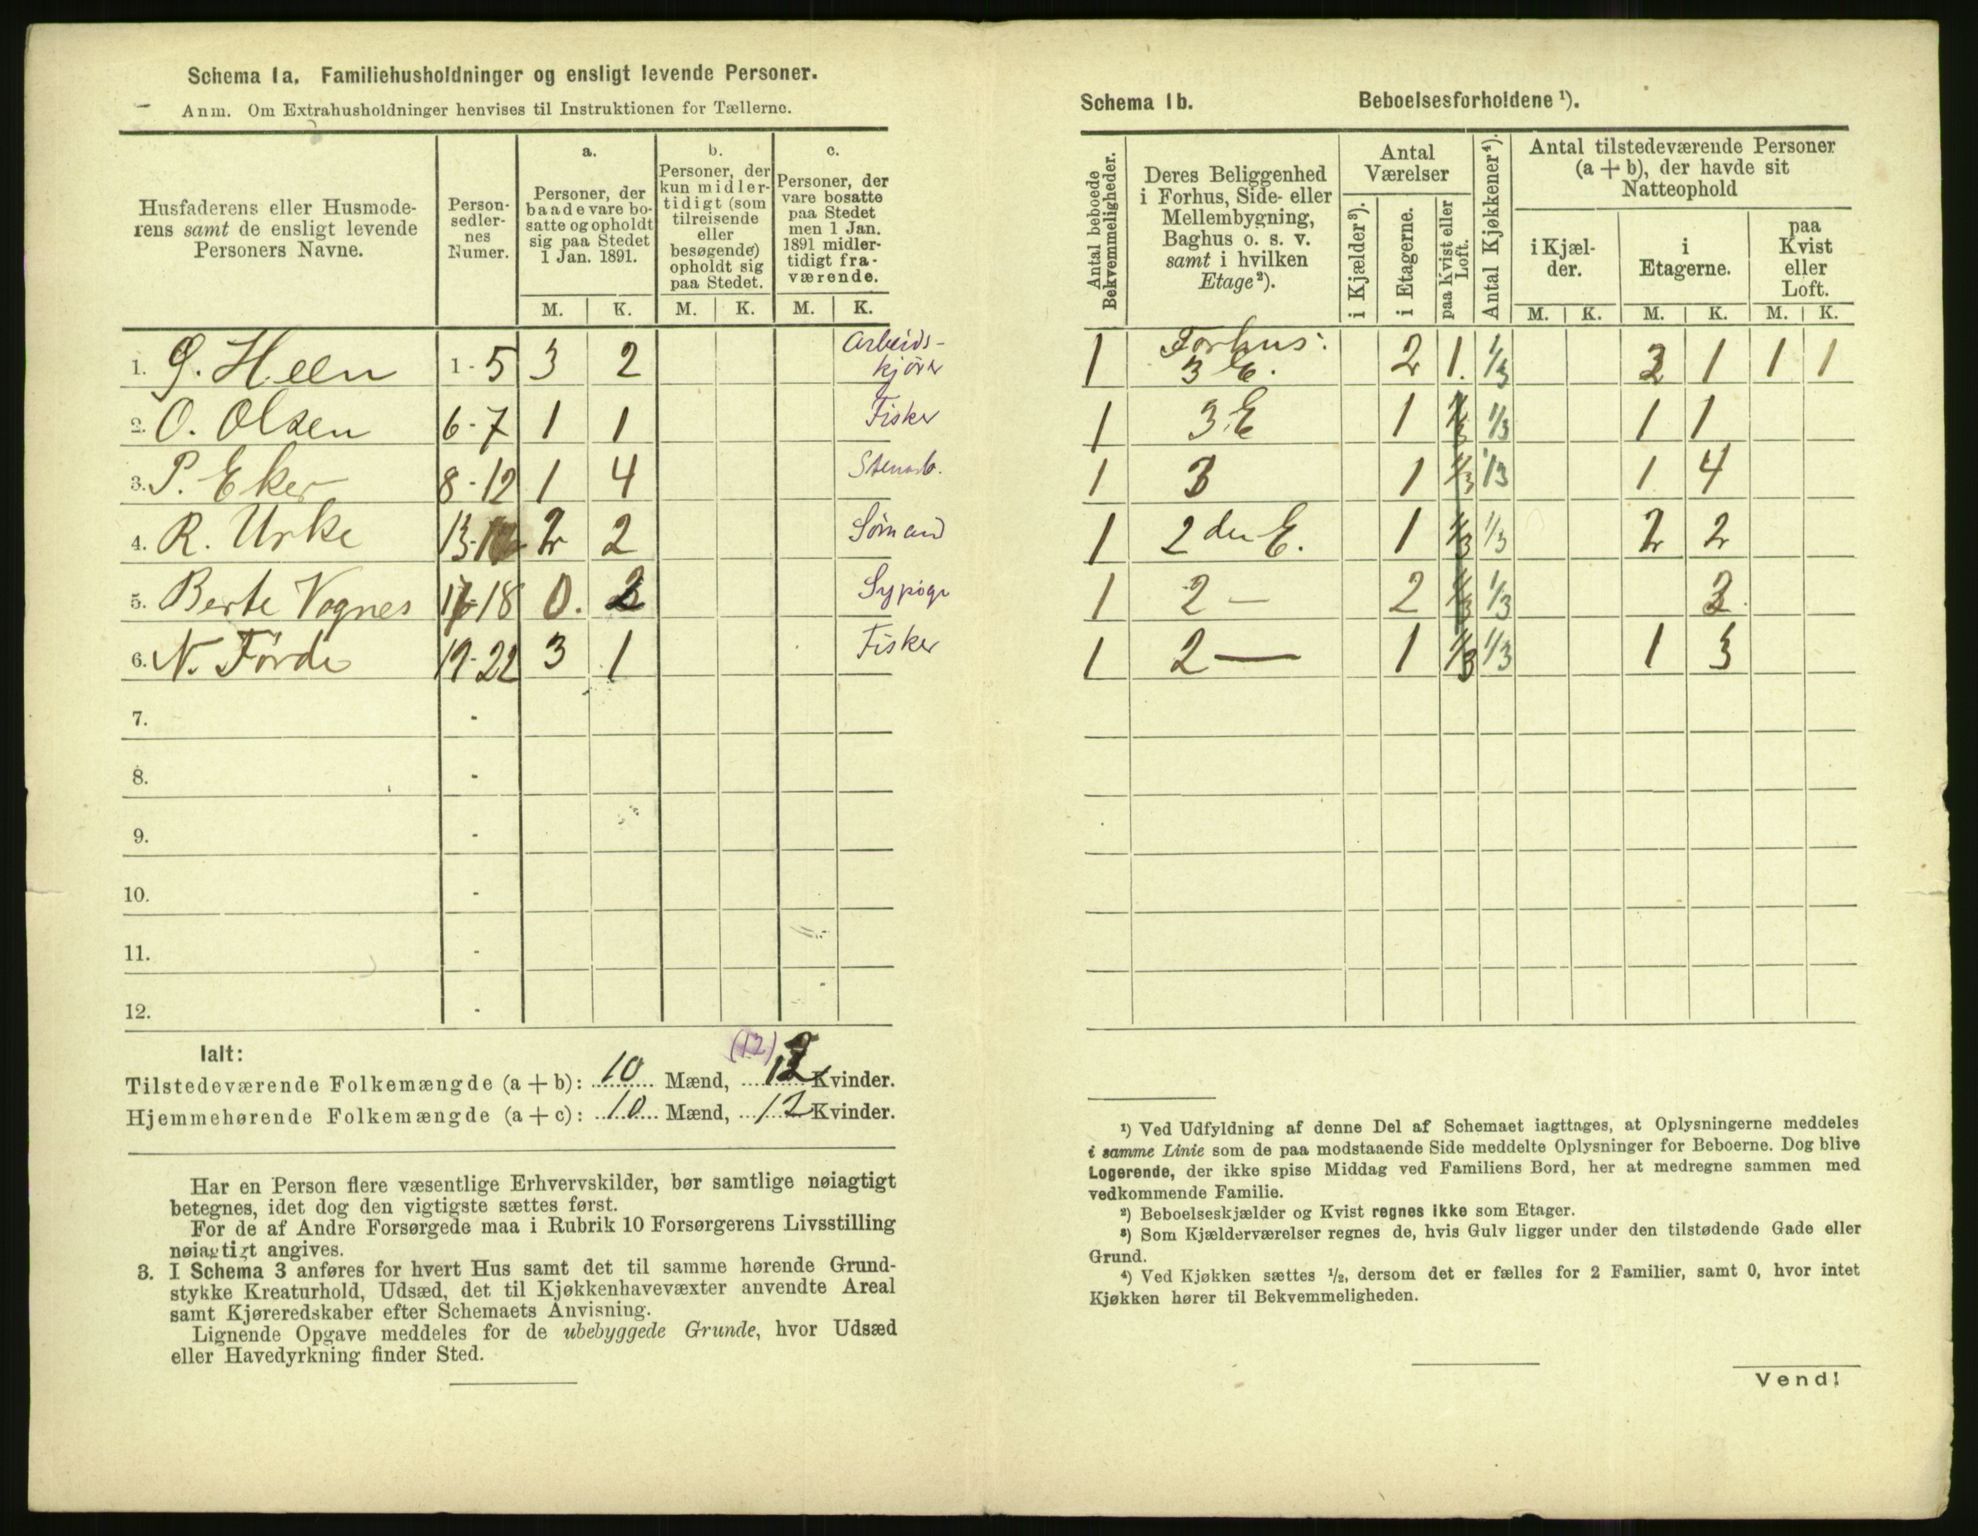 Schema 1a. Familiehusholdninger og ensligt levende Personer.
Anm. Om Extrahusholdninger henvises til Instruktionen for Tællerne.
Husfaderens eller Husmode-
rens samt de ensligt levende
Personers Navne.
Person-
sedler-
nes
Numer.
a.
Personer, der
baade vare bo-
satte og opholdt
sig paa Stedet
1 Jan. 1891.
b.
Personer, der
kun midler-
tidigt (som
tilreisende
eller
besøgende)
opholdt sig
paa Stedet.
c.
Personer, der
vare bosatte
paa Stedet
men 1 Jan.
1891 midler-
tidigt fra-
værende.
M. K. M. K. M. K.
1. G. Heen 1-5 3 2 Arbeids-
kjörer
2. O. Olsen 6-7 1 1 Fisker
3. P. Eker 8-12 1 4 Stenarb.
4. R. Urke 13- 2 2 Sömand
5. Berte Vognes 17-18 0. 2 Sypige
6. N. Förde 19-22 3 1 Fisker
7. -
8. -
9. -
10. -
11. -
12. -
Ialt:
(12)
Tilstedeværende Folkemængde (a + b): 10 Mænd, 12 Kvinder.
Hjemmehørende Folkemængde (a + c): 10 Mænd, 12 Kvinder.
Har en Person flere væsentlige Erhvervskilder, bør samtlige nøiagtigt
betegnes, idet dog den vigtigste sættes først.
For de af Andre Forsørgede maa i Rubrik 10 Forsørgerens Livsstilling
nøiagtigt angives.
3. I Schema 3 anføres for hvert Hus samt det til samme hørende Grund-
stykke Kreaturhold, Udsæd, det til Kjøkkenhavevæxter anvendte Areal
samt Kjøreredskaber efter Schemaets Anvisning.
Lignende Opgave meddeles for de ubebyggede Grunde, hvor Udsæd
eller Havedyrkning finder Sted.
Schema 1b. Beboelsesforholdene ¹).
Antal beboede
Bekvemmeligheder.
Deres Beliggenhed
i Forhus, Side- eller
Mellembygning,
Baghus o. s. v.
samt i hvilken
Etage ²).
Antal
Værelser
i Kjælder ³).
i Etagerne.
paa Kvist eller
Loft.
Antal Kjøkkener ⁴).
Antal tilstedeværende Personer
(a + b), der havde sit
Natteophold
i Kjæl-
der.
i
Etagerne.
paa
Kvist
eller
Loft.
M. K. M. K. M. K.
1 Forhus:
3 E. 2 1. 1/3 2 1 1 1
1 3 E 1 1/3 1/3 1 1
1 3 1 1/3 1/3 1 4
1 2 den E. 1 1/3 1/3 2 2
1 2 — 2 1/3 1/3 2
1 2 — 1 1/3 1/3 1 3
¹) Ved Udfyldning af denne Del af Schemaet iagttages, at Oplysningerne meddeles
i samme Linie som de paa modstaaende Side meddelte Oplysninger for Beboerne. Dog blive
Logerende, der ikke spise Middag ved Familiens Bord, her at medregne sammen med
vedkommende Familie.
²) Beboelseskjælder og Kvist regnes ikke som Etager.
³) Som Kjælderværelser regnes de, hvis Gulv ligger under den tilstødende Gade eller
Grund.
⁴) Ved Kjøkken sættes ½, dersom det er fælles for 2 Familier, samt 0, hvor intet
Kjøkken hører til Bekvemmeligheden.
Vend!